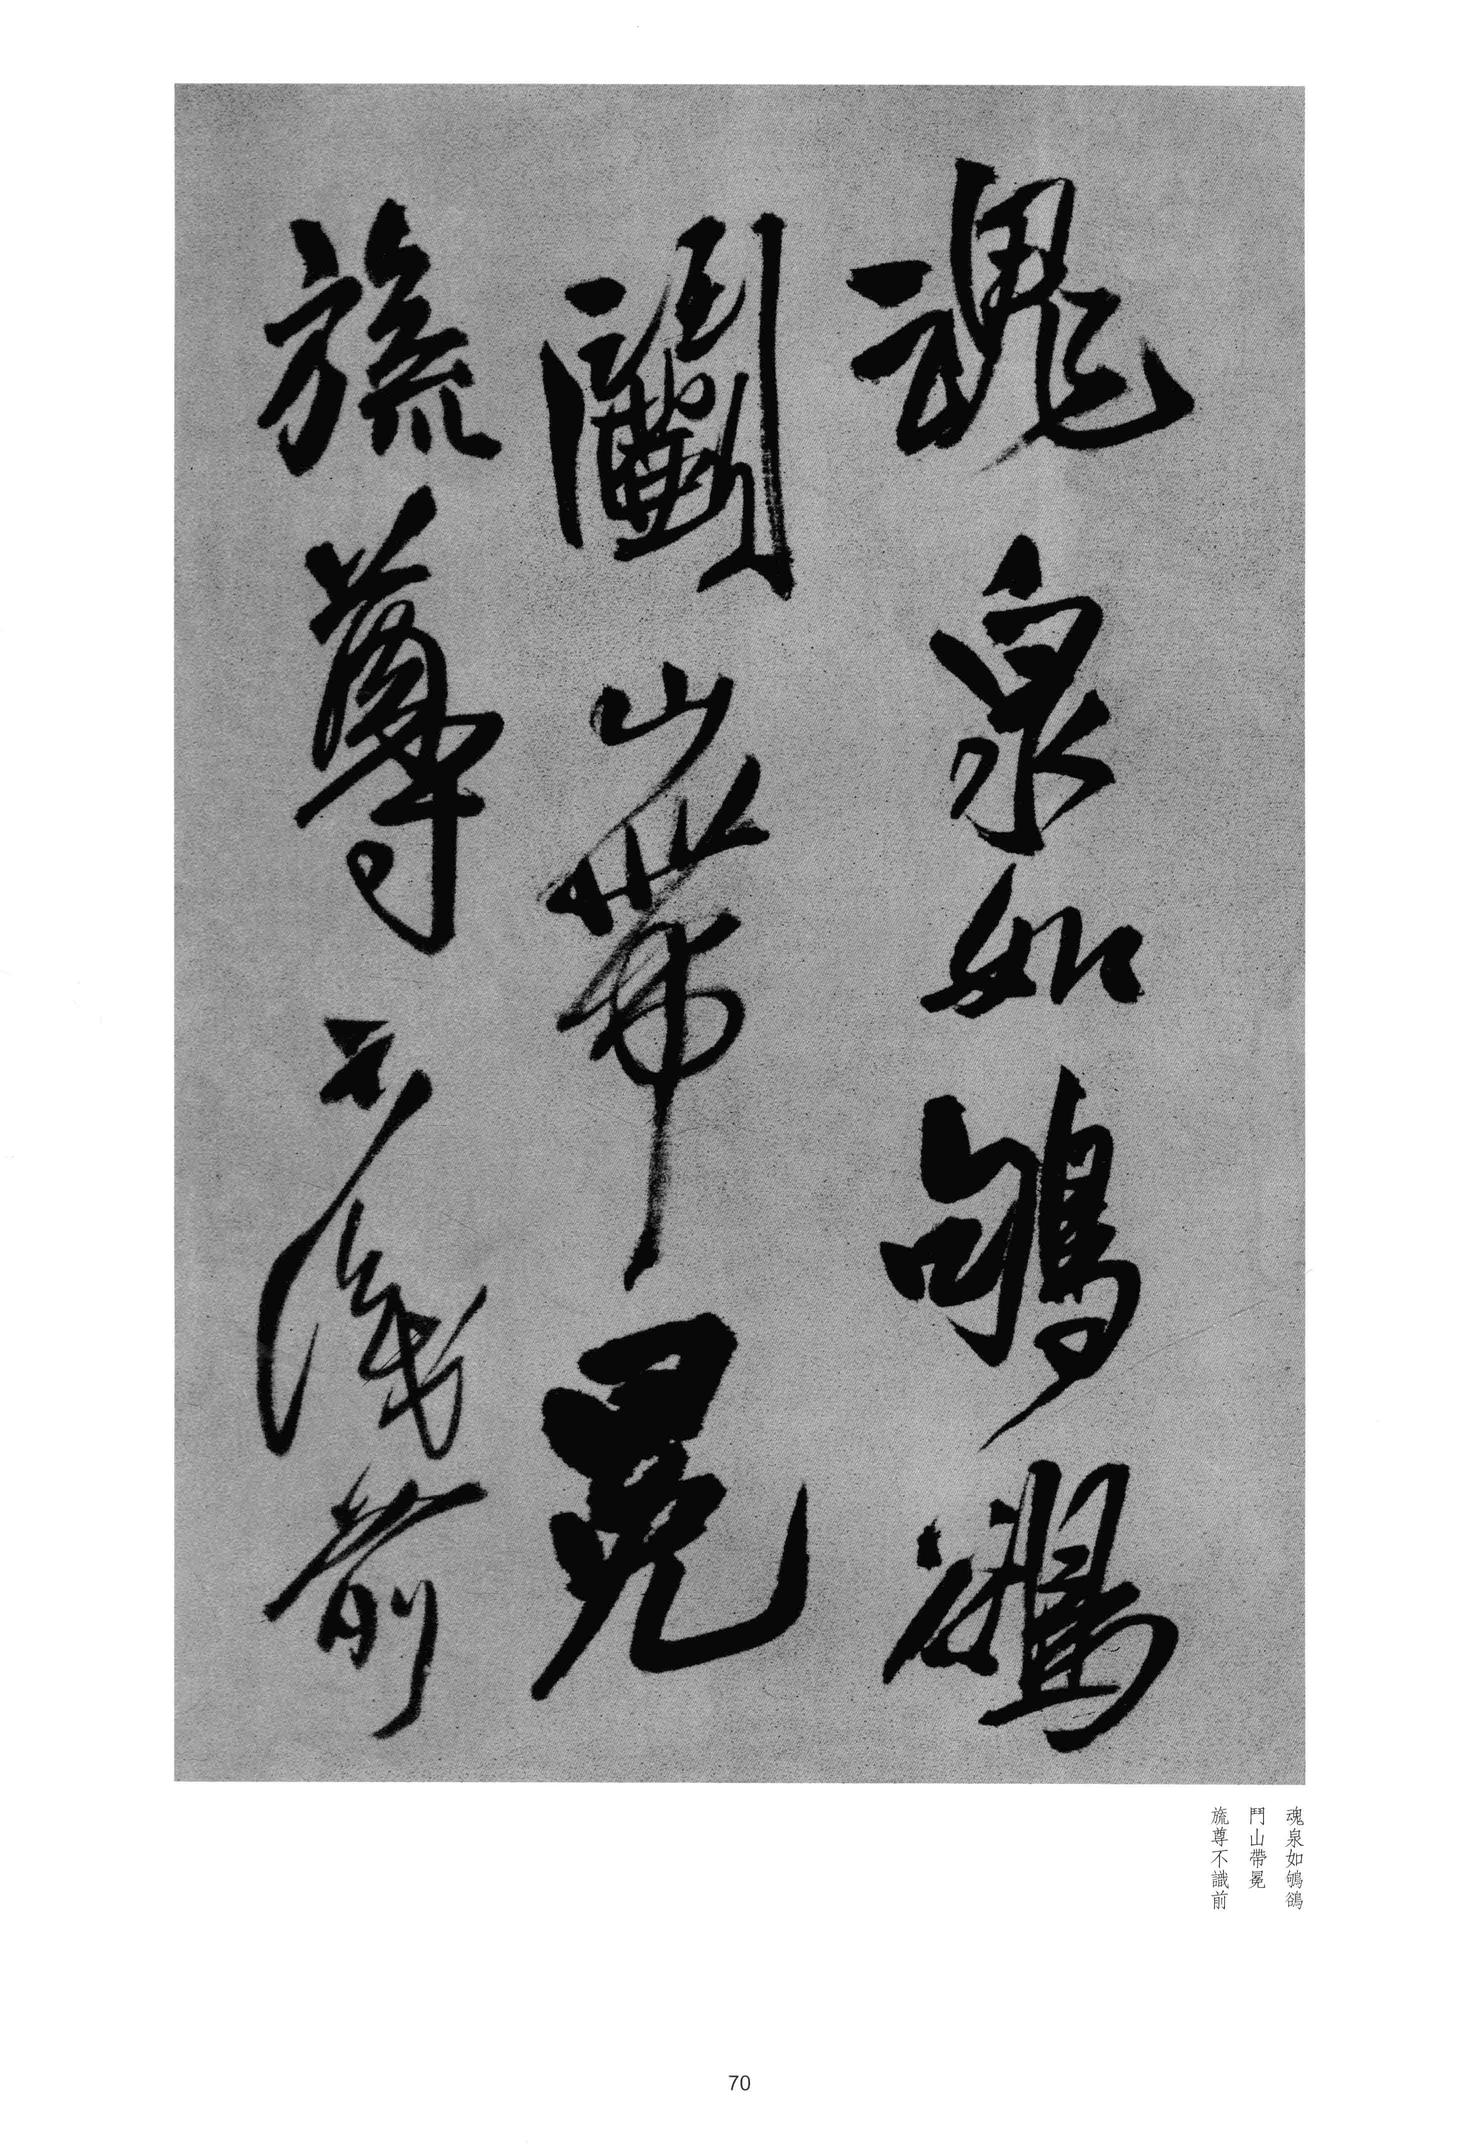 魂泉如鴝鵒
鬥山帶冕
旒尊不識前
魂泉如鴝鵒
鬥山帶冕
旒尊不識前
70